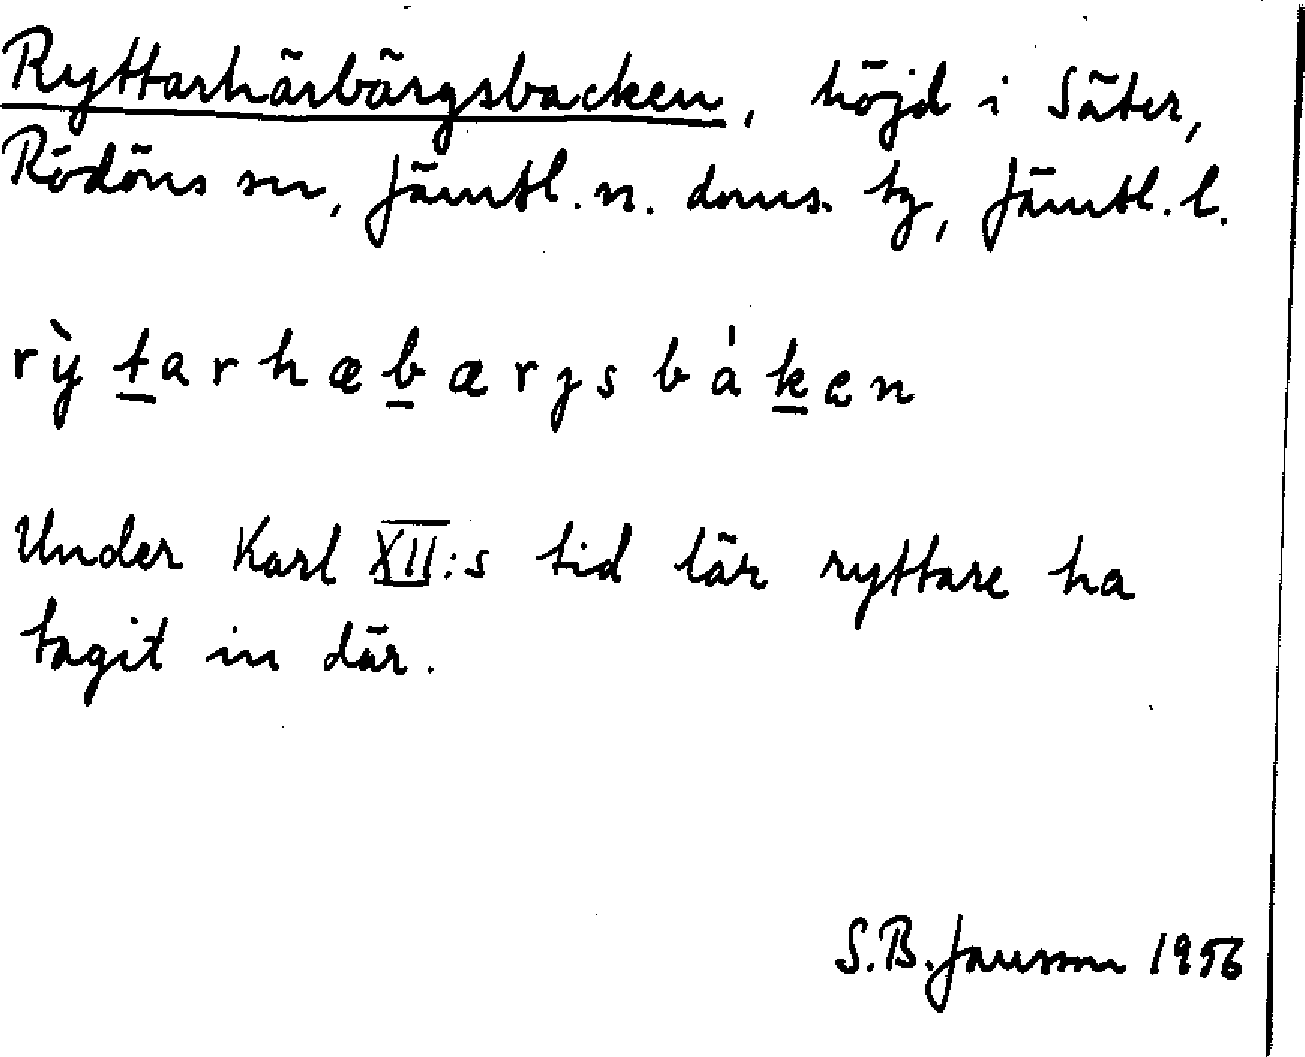 Ryttarhärbärgsbacken, höjd i Säter,
Rödöns sn, Jämtl. n. doms. tg, Jämtl. l.
rỳtarhæbærgsbáken
Under Karl XII:s tid lär ryttare ha
tagit in där.
S.B. Jansson 1956